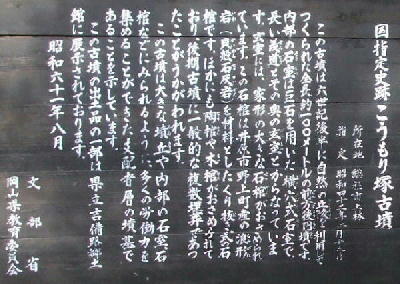 国指定史跡 こうもり塚古墳
所在地 総社市上林
指定 昭和四十三年二月十五日
この古墳は六世紀後半に自然の丘陵を利用して
つくられた全長約一〇〇メートルの前方後円墳です。
内部の石室は巨石を用いた横穴式石室で、
長い羨道とその奥の玄室とからなっていま
す。玄室には、家形の大きな石棺がおさめられ
ています。この石棺は井原市野上町産の浪形
岩(貝殻石灰岩)を材料としたくり抜き式石
棺です。ほかにも陶棺や木棺がおさめられて
おり、後期古墳に一般的な複数埋葬であっ
たことがうかがわれます。
この古墳は大きな墳丘や内部の石室、石
棺などにみられるように、多くの労働力を
集めることができた支配者層の墳墓で
あることを示しています。
この古墳の出土品の一部は県立吉備路郷土
館に展示されております。
昭和六十一年八月
文部省
岡山県教育委員会